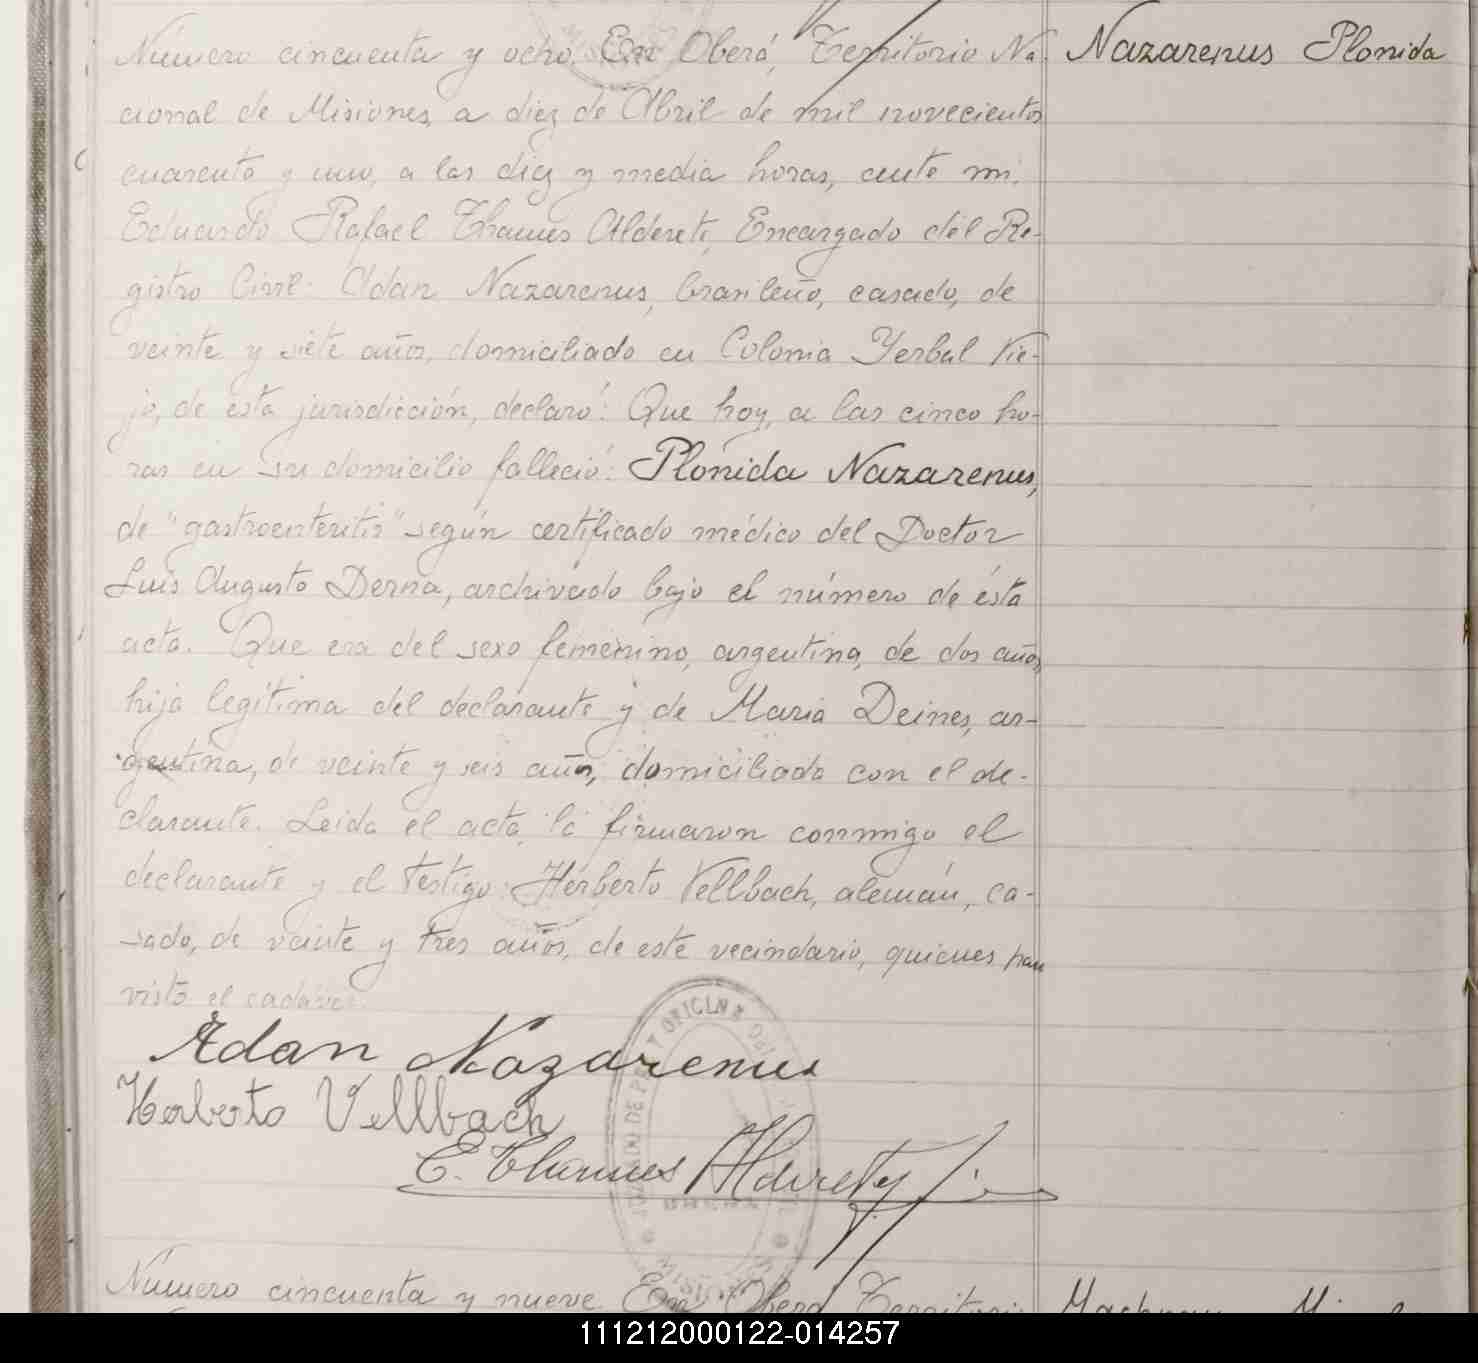 Número cincuenta y ocho. En Oberá, Territorio Na-
cional de Misiones, a diez de Abril de mil novecientos
cuarenta y uno, a las diez y media horas, ante mi,
Eduardo Rafael Thames Alderete, Encargado del Re-
gistro Civil: Adan Nazarenus, brasileño, casado, de
veinte y siete años, domiciliado en Colonia Yerbal Vie-
jo, de ésta jurisdicción, declaró: Que hoy, a las cinco ho-
ras en su domicilio falleció: Plonida Nazarenus,
de "gastroenteritis" según certificado médico del Doctor
Luis Augusto Derna, archivado bajo el número de ésta
acta. Que era del sexo femenino, argentina, de dos años,
hija legítima del declarante y de Maria Deines, ar-
gentina, de veinte y seis años, domiciliada con el de-
clarante. Leida el acta, la firmaron conmigo el
declarante y el testigo: Herberto Vellbach, alemán, ca-
sado, de veinte y tres años, de este vecindario, quienes han
visto el cadáver.
Adan Nazarenus
Herberto Vellbach
E. Thames Alderete
Nazarenus Plonida
Número cincuenta y nueve. En Oberá, Territorio
111212000122-014257